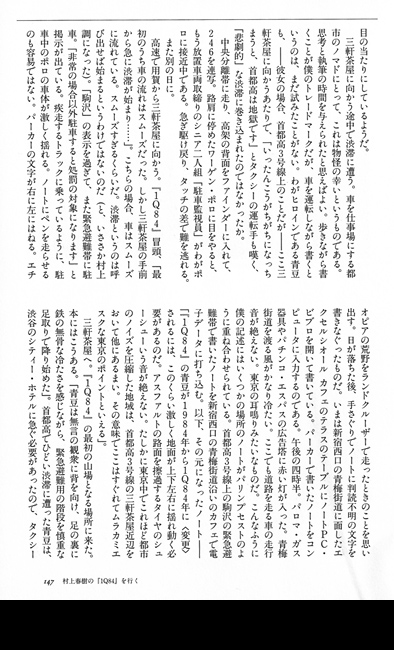 目の当たりにしているようだ。
　三軒茶屋に向かう途中で渋滞に遭う。車を仕事場にする都
市のノマドにとって、これは物怪の幸いというものである。
思考と執筆の時間を与えられたと思えばよい。歩きながら書
くことが僕のトレードマークだが、車を運転しながら書くと
いうのは、まだ試みたことがない。わがヒロインである青豆
も、――彼女の場合、首都高3号線上のことだが――ここ三
軒茶屋に向かうあたりで、「いったんこうがちがちになっち
まうと、首都高は地獄です」とタクシーの運転手も嘆く、
「悲劇的」な渋滞に巻き込まれたのではなかったか。
　中央分離帯に走り、高架の背面をファインダーに入れて、
246を連写。路肩に停めたワーゲン・ポロに目をやると、
もう放置車両取締りのシニア二人組「駐車監視員」がわがポ
ロに接近中である。急ぎ駆け戻り、タッチの差で難を逃れる。
　また別の日に。
　高速で用賀から三軒茶屋に向かう。『1Q84』冒頭、「最
初のうち車の流れはスムーズだった。しかし三軒茶屋の手前
から急に渋滞が始まり……」。こちらの場合、車はスムーズ
に流れている。スムーズすぎるくらいだ。渋滞というのは呼
び出せば始まるというわけではないのだ（と、いささか村上
調になって）。「駒沢」の表示を過ぎて、また緊急避難帯に駐
車。「非常の場合以外駐車すると処罰の対象になります」と
掲示が出ている。疾走するトラックに乗っているように、駐
車中のポロの車体が激しく揺れる。ノートにペンを走らせる
のも容易ではない。パーカーの文字が右に左にはねる。エチ
オピアの荒野をランドクルーザーで走ったときのことを思い
出す。日が落ちた後、手さぐりでノートに判読不明の文字を
書きなぐったものだ。いまは新宿西口の青梅街道に面したエ
クセルシオール カフェのテラスのテーブルにノートPC・
ピプロを開いて書いている。パーカーで書いたノートをコン
ピュータに入力するのである。午後の四時半。パロマ・ガス
器具やパチンコ・エスパスの広告塔に赤い灯が入った。青梅
街道を渡る風がかなり冷たい。ここでも道路を走る車の走行
音が絶えない。東京の耳鳴りみたいなものだ。こんなふうに
僕の記述にはいくつかの場所のノートがパリンプセストのよ
うに重ね合わせられている。首都高3号線上の駒沢の緊急避
難帯で書いたノートを新宿西口の青梅街道沿いのカフェで電
子データに打ち込む。以下、その元になったノート――
「『1Q84』の青豆が1984年から1Q84年に〈変更〉
されるには、このくらい激しく地面が上下左右に揺れ動く必
要があるのだ。アスファルトの路面を擦過するタイヤのシュ
ーシューいう音が絶えない。たしかに東京中でこれほど都市
のノイズを圧縮した地域は、首都高3号線の三軒茶屋近辺を
おいて他にあるまい。その意味でここはすぐれてムラカミエ
スクな東京のポイントといえる」
　三軒茶屋へ。『1Q84』の最初の山場となる場所に来た。
本にはこうある。「青豆は無言の観衆に背を向け、足の裏に
鉄の無骨な冷たさを感じながら、緊急避難用の階段を慎重な
足取りで降り始めた」。首都高でひどい渋滞に遭った青豆は、
渋谷のシティー・ホテルに急ぐ必要があったので、タクシー
147　村上春樹の『1Q84』を行く